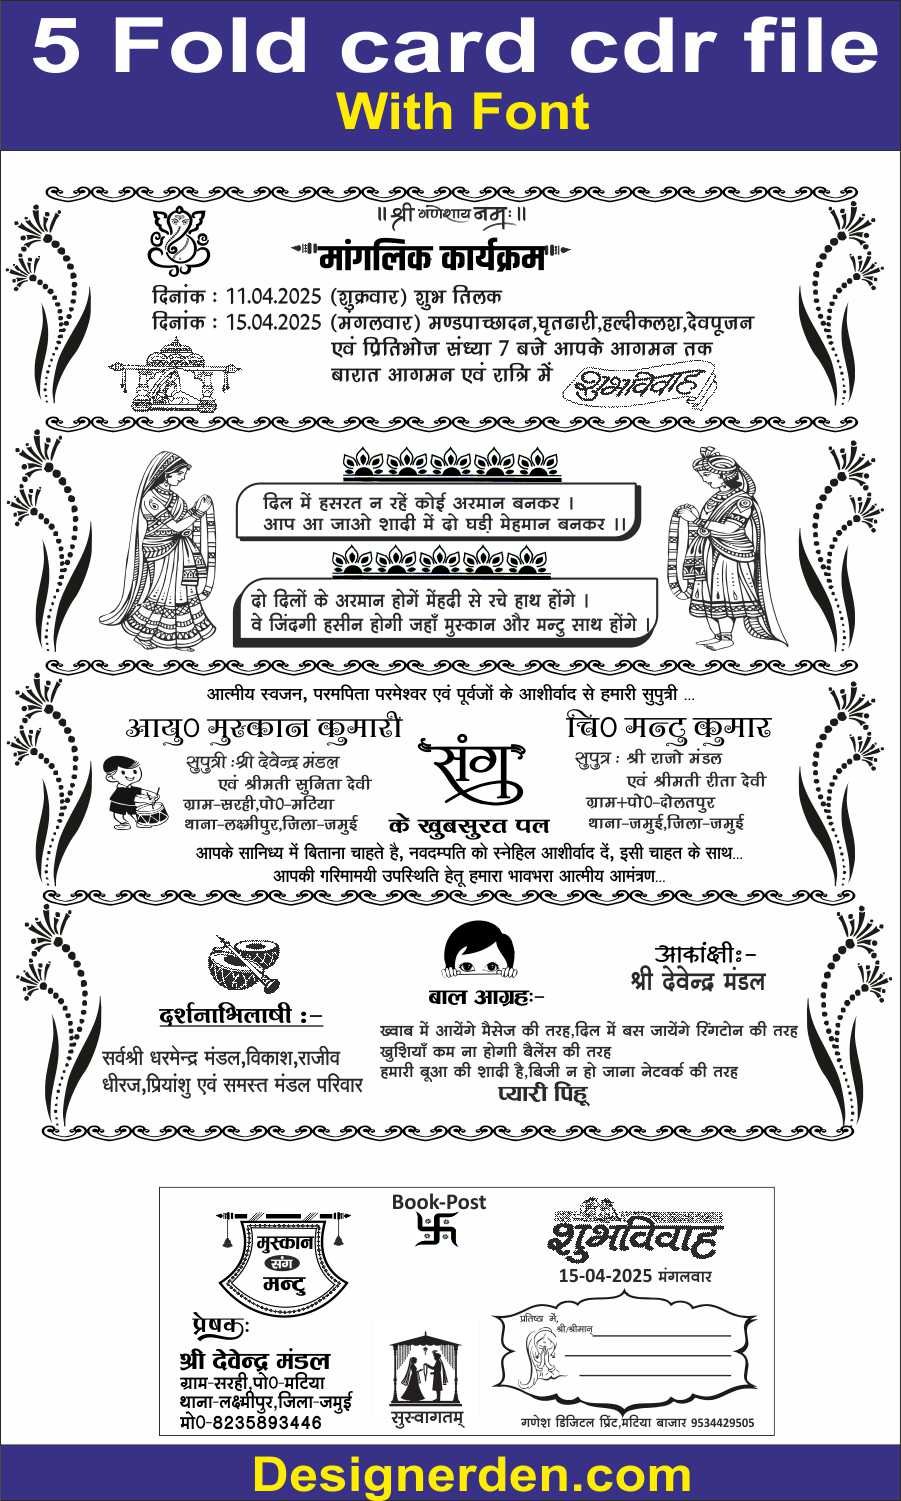 5 Fold card cdr file
With Font
॥ श्री गणेशाय नमः॥
मांगलिक कार्यक्रम
दिनांक : 11.04.2025 (शुक्रवार) शुभ तिलक
दिनांक : 15.04.2025 (मंगलवार) मण्डपाच्छादन,घृतढारी,हल्दीकलश,देवपूजन
एवं प्रितिभोज संध्या 7 बजे आपके आगमन तक
बारात आगमन एवं रात्रि में
शुभविवाह
दिल में हसरत न रहें कोई अरमान बनकर ।
आप आ जाओ शादी में दो घड़ी मेहमान बनकर ।।
दो दिलों के अरमान होगें मेंहदी से रचे हाथ होंगे ।
वे जिंदगी हसीन होगी जहाँ मुस्कान और मन्टु साथ होंगे ।
आत्मीय स्वजन, परमपिता परमेश्वर एवं पूर्वजों के आशीर्वाद से हमारी सुपुत्री ...
आयु0 मुस्कान कुमारी
सुपुत्री :श्री देवेन्द्र मंडल
एवं श्रीमती सुनिता देवी
ग्राम-सरही,पो0-मटिया
थाना-लक्ष्मीपुर,जिला-जमुई
संग
के खुबसुरत पल
चि0 मन्टु कुमार
सुपुत्र : श्री राजो मंडल
एवं श्रीमती रीता देवी
ग्राम+पो0-दोलतपुर
थाना-जमुई,जिला-जमुई
आपके सानिध्य में बिताना चाहते है, नवदम्पति को स्नेहिल आशीर्वाद दें, इसी चाहत के साथ...
आपकी गरिमामयी उपस्थिति हेतू हमारा भावभरा आत्मीय आमंत्रण...
दर्शनाभिलाषी :-
सर्वश्री धरमेन्द्र मंडल,विकाश,राजीव
धीरज,प्रियांशु एवं समस्त मंडल परिवार
बाल आग्रहः-
आकांक्षीः-
श्री देवेन्द्र मंडल
ख्वाब में आयेंगे मैसेज की तरह,दिल में बस जायेंगे रिंगटोन की तरह
खुशियाँ कम ना होगाी बैलेंस की तरह
हमारी बूआ की शादी है,बिजी न हो जाना नेटवर्क की तरह
प्यारी पिहू
मुस्कान
संग
मन्टु
प्रेषकः
श्री देवेन्द्र मंडल
ग्राम-सरही,पो0-मटिया
थाना-लक्ष्मीपुर,जिला-जमुई
मो0-8235893446
Book-Post
सुस्वागतम्
शुभविवाह
15-04-2025 मंगलवार
प्रतिष्ठा में,
श्री/श्रीमान्
गणेश डिजिटल प्रिंट,मटिया बाजार 9534429505
Designerden.com